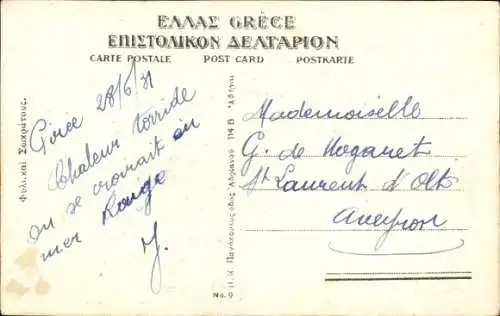 ΕΛΛΑΣ GRÈCE
ΕΠΙΣΤΟΛΙΚΟΝ ΔΕΛΤΑΡΙΟΝ
CARTE POSTALE POST CARD POSTKARTE
Φυλακαὶ Σωκράτους.
Grèce 28/6/31
Chaleur torride
on se croirait en
mer Rouge
J.
114 Β Ἀθῆναι
No. 9
Mademoiselle
G. de Nogaret
St Laurent d'Olt
Aveyron